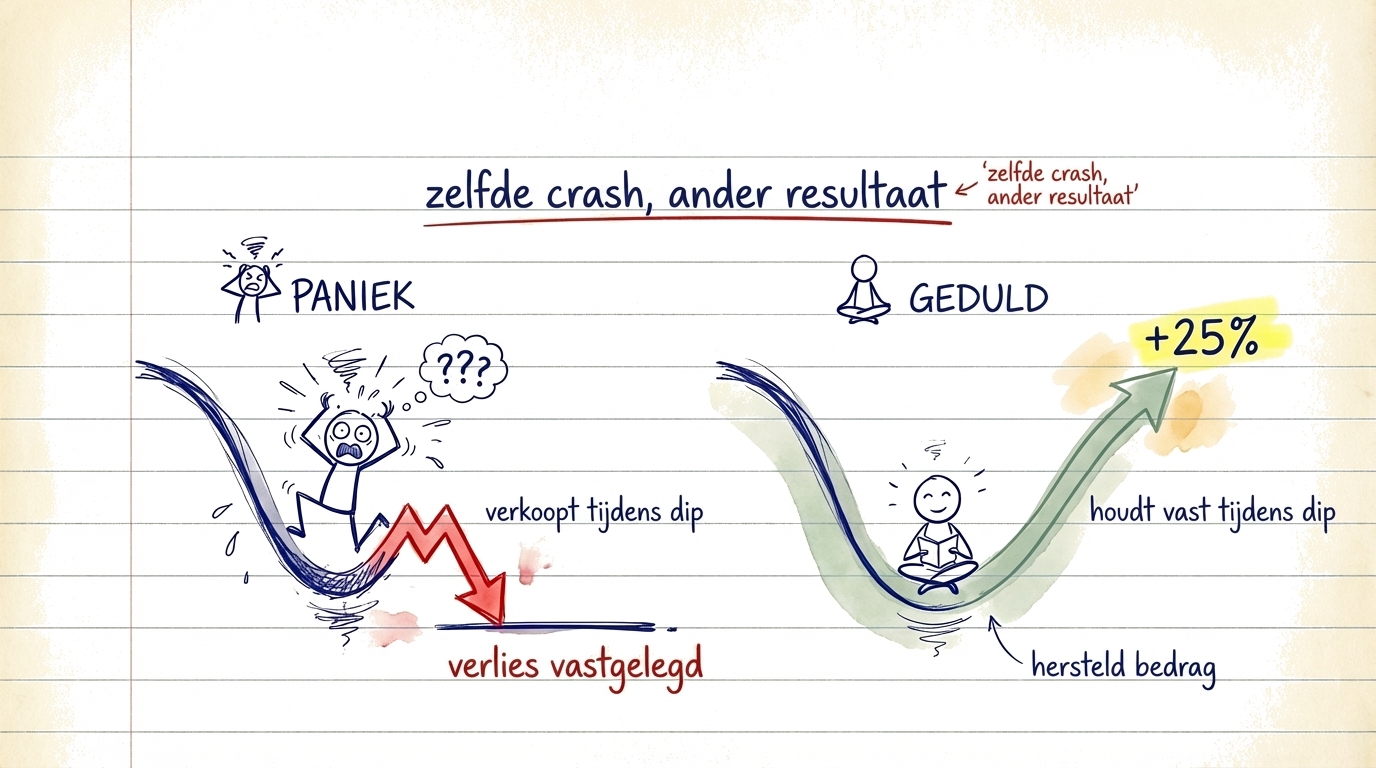 zelfde crash, ander resultaat
'zelfde crash,
ander resultaat'
PANIEK
GEDULD
+25%
???
verkoopt tijdens dip
houdt vast tijdens dip
verlies vastgelegd
hersteld bedrag